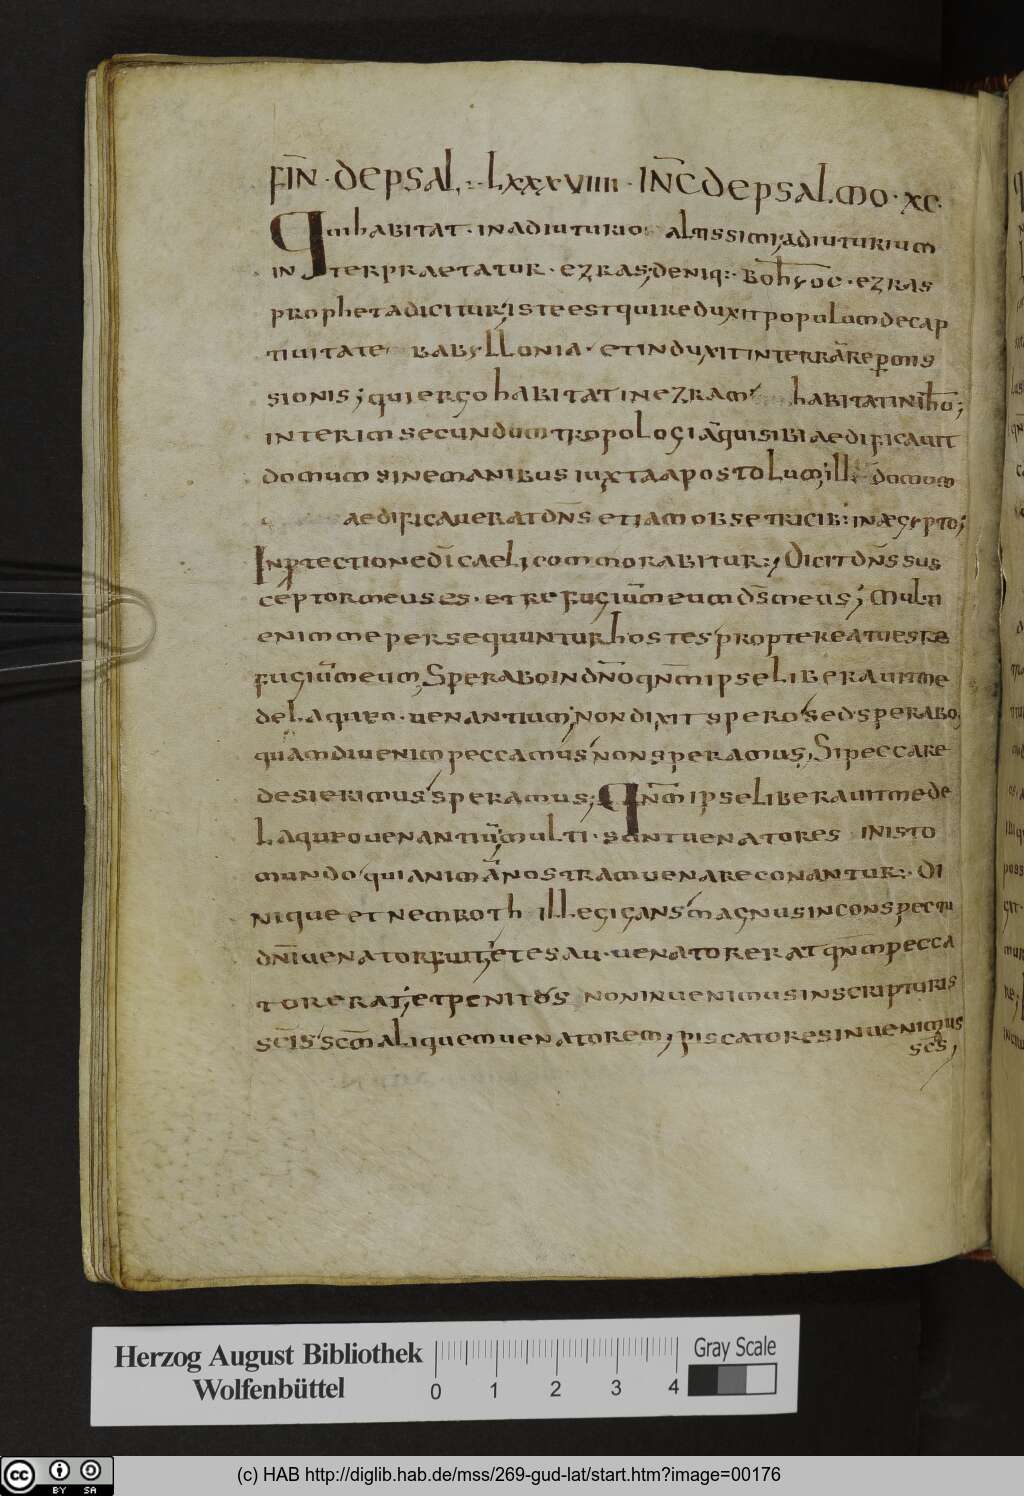 FIN̄ · DE PSAL · LXXXVIIII · INC̄ DE PSALMO · XC ·
Qui habitat · in adiuturio altissimi; adiuturium
interpraetatur · ezras; deniq: boh̄ yoc · ezras
propheta dicitur; iste est qui reduxit populum de cap
tiuitate babyllonia · et induxit in terrā repromis
sionis; qui ergo habitat in ezram habitat in ih̄o;
interim secundum tropologiā qui sibi aedificauit
domum sine manibus iuxta apostolum; ill: domum
aedificauerat dn̄s etiam obsetricib: in aegypto;
In protectione dī caeli commorabitur:, Dicit dn̄s sus
ceptor meus es · et refugiū meum ds̄ meus; Multi
enim me persequuntur hostes propterea tu es re
fugiū meum, Sperabo in dn̄o qn̄m ipse liberauit me
de laqueo · uenantium; non dixit spero sed sperabo,
quamdiu enim peccamus non speramus, Si peccare
desierimus speramus; Qn̄m ipse liberauit me de
laqueo uenantiū; multi · sunt uenatores in isto
mundo qui animā nostram uenare conantur:· Di
nique et nemroth ille gigans magnus in conspectu
dn̄i uenator fuit; et esau · uenator erat qn̄m pecca
tor erat; et penitus non inuenimus in scripturis
sc̄is sc̄m aliquem uenatorem, piscatores inuenimus
sc̄s,
Herzog August Bibliothek
Wolfenbüttel
0 1 2 3 4
Gray Scale
cc BY SA
(c) HAB http://diglib.hab.de/mss/269-gud-lat/start.htm?image=00176